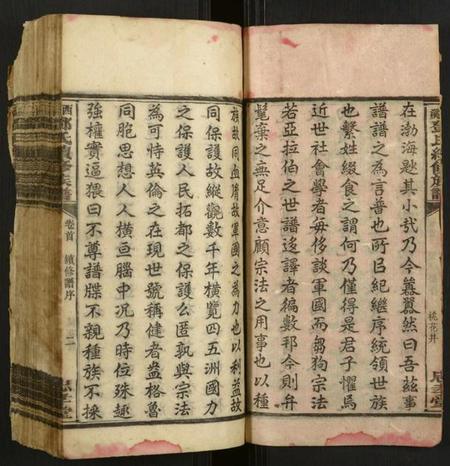 在渤海尟其小弐乃今蠢蠢然曰吾茲事
譜譜之為言普也所㠯紀継序統領世族
也繫姓綴食之謂何乃懂得是君子懼焉
近世社會學者毎侈談軍國而芻狗宗法
若亞拉伯之世譜迻譯者徧數邦今則弁
髦棄之無足介意顧宗法之用事也以種
族故同血𦙍故軍國之為力也以利益故
同保護故縱觀數千年橫覽四五洲國力
之保護人民拓都之保護公匿孰與宗法
為可恃英倫之在現世號稱健者盎格魯
同胞思想人人橫亘腦中况乃時位殊趣
強權實逼猥曰不尊譜牒不親種族不揀
卷首
續修譜序
二
桃花井